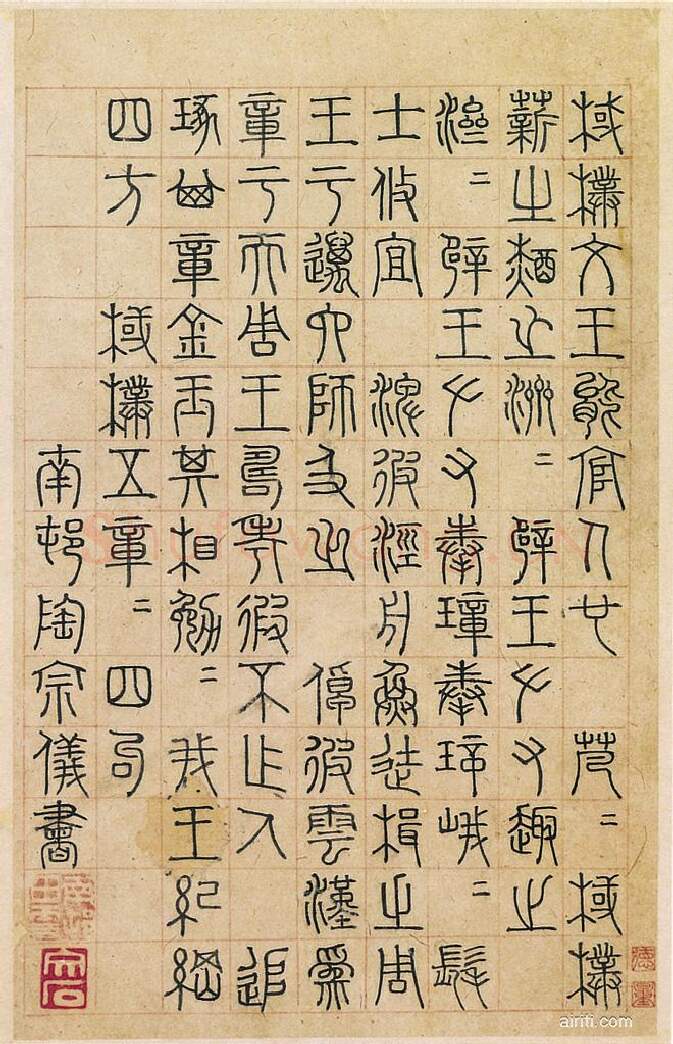 棫樸文王能官人也 芃〻棫樸
薪之槱之濟〻 辟王左右趣之
濟〻 辟王左右奉璋奉璋峨〻 髦
士攸宜 淠彼涇舟烝徒楫之周
王于邁六師及之 倬彼雲漢為
章于天周王壽考遐不作人 追
琢其章金玉其相勉〻 我王紀綱
四方 棫樸五章〻四句
南邨陶宗儀書
airiti.com